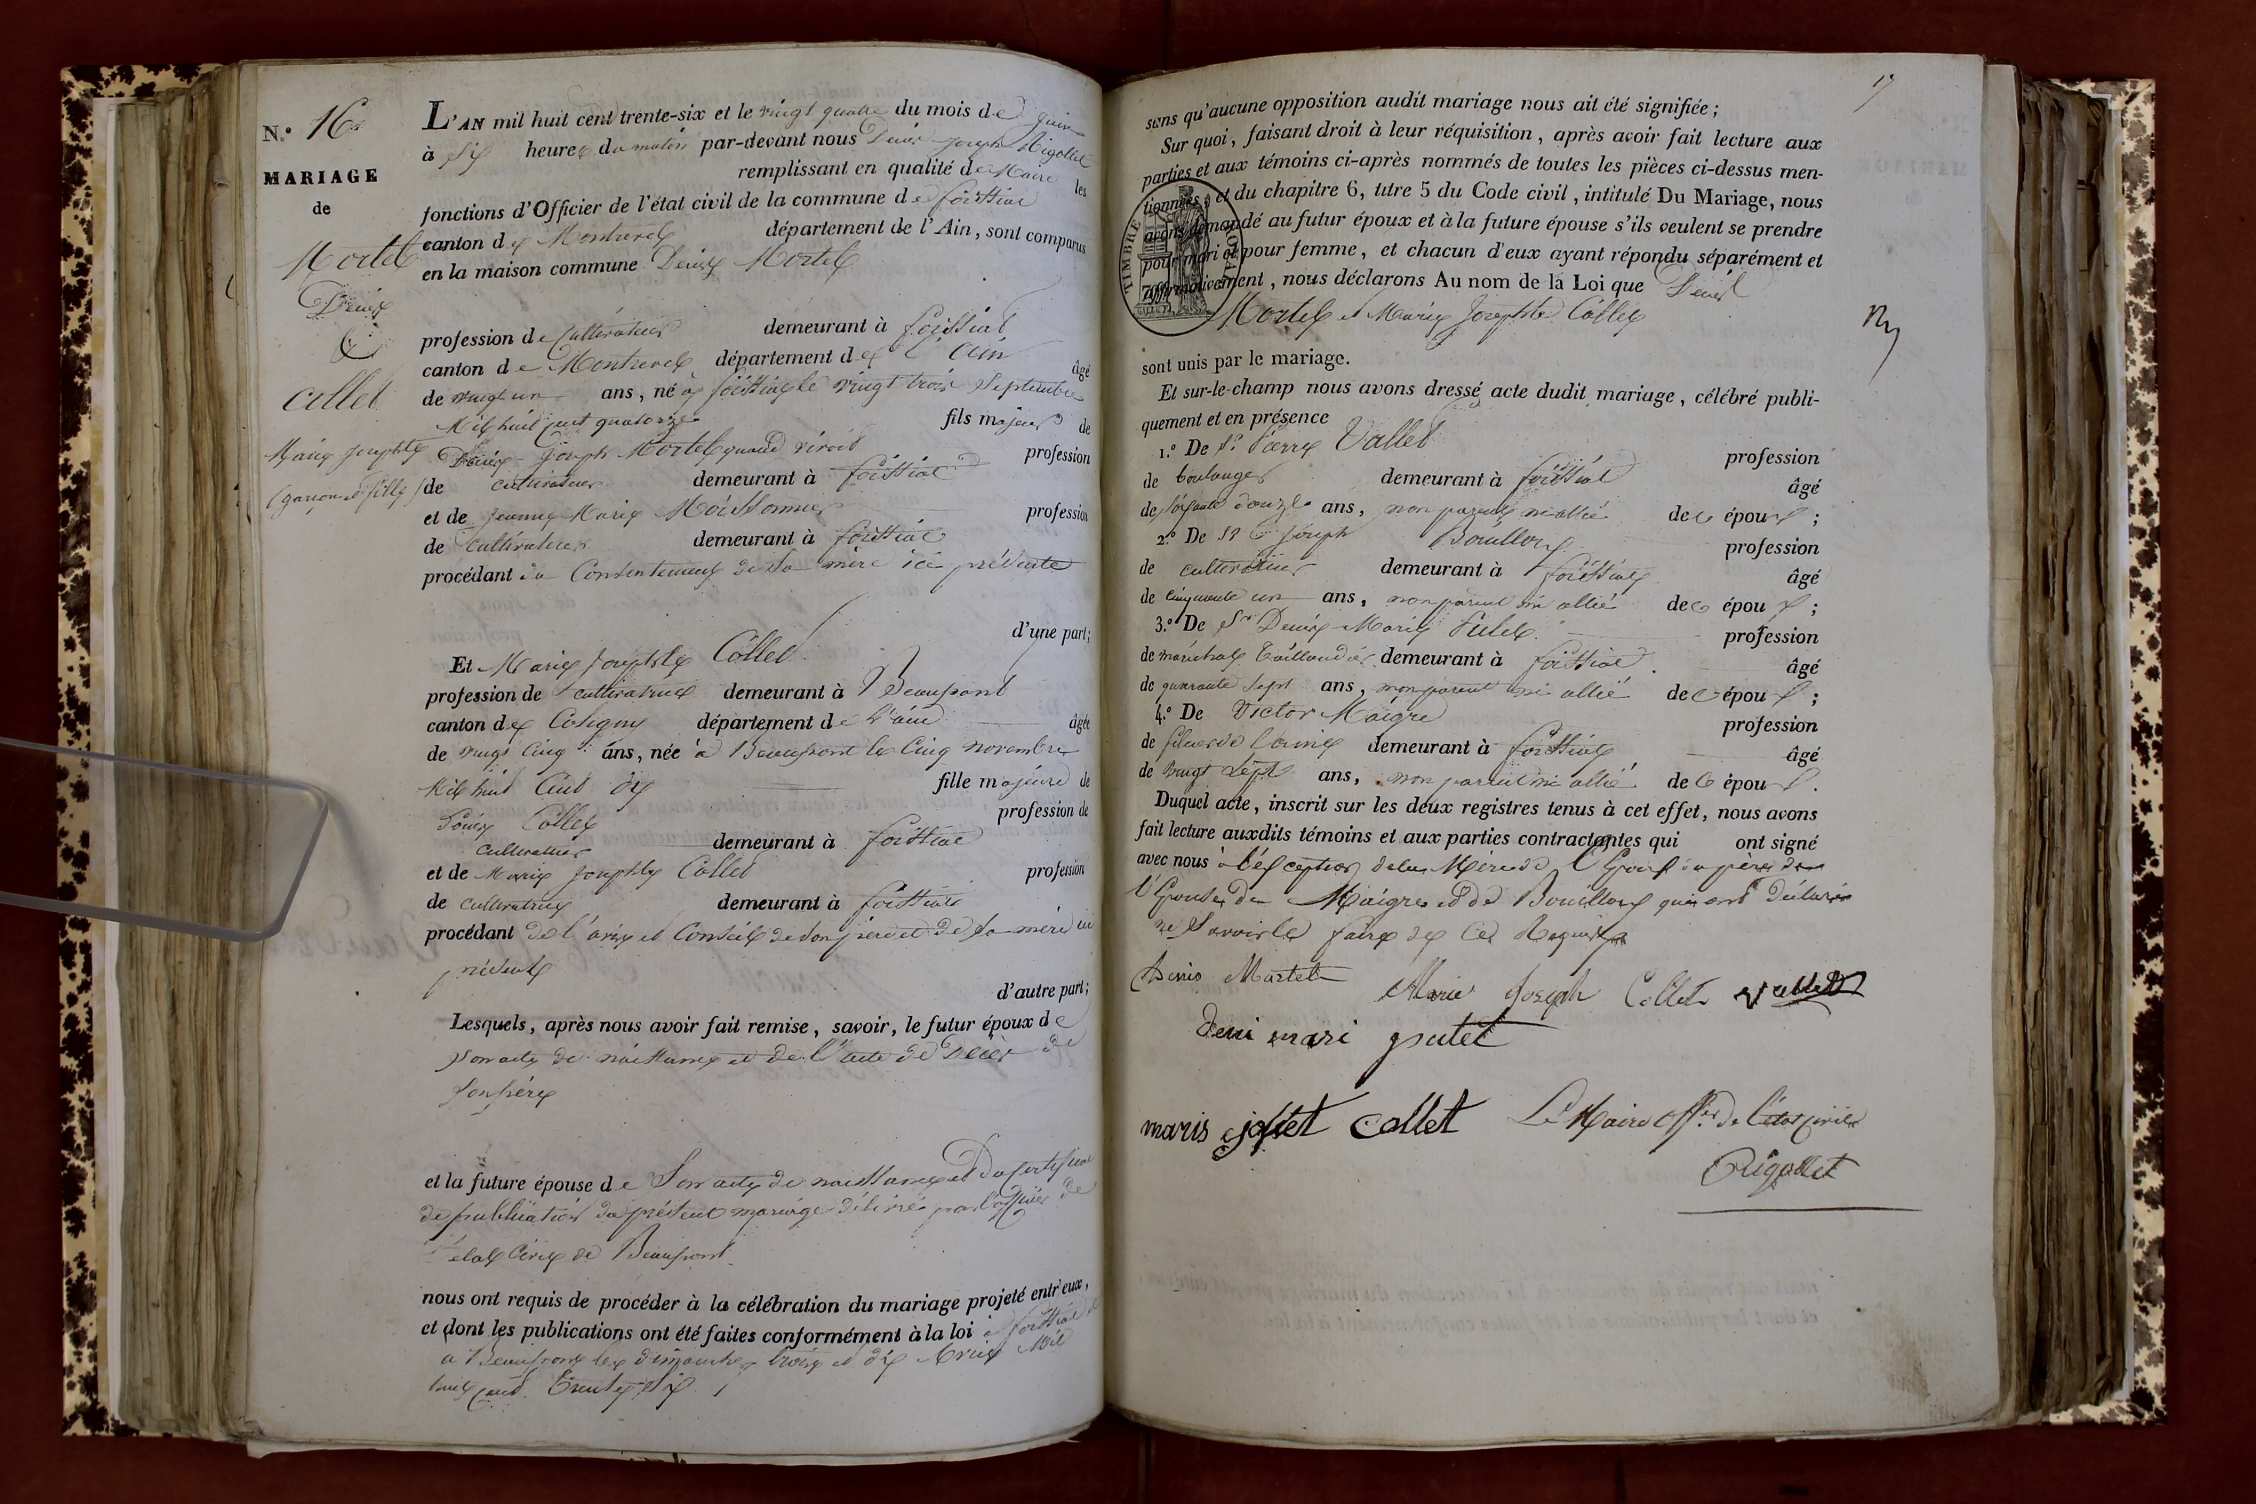 N.° 16
MARIAGE
de
Mortel
Denis
Et
Collet
Marie Josephte
(garçon et fille)
L'AN mil huit cent trente-six et le vingt quatre du mois de juin
à six heures du matin par-devant nous Denis Joseph Rigollet
remplissant en qualité de Maire les
fonctions d'Officier de l'état civil de la commune de foissiat
canton de Montrevel département de l'Ain, sont comparus
en la maison commune Denis Mortel
profession de Cultivateur demeurant à foissiat
canton de Montrevel département de l'ain âgé
de vingt un ans, né à foissiat le vingt trois Septembre
Mil huit cent quatorze fils majeur de
Denis Joseph Mortel quand vivoit profession
de cultivateur demeurant à foissiat
et de jeanne Marie Moissonnier profession
de cultivatrice demeurant à foissiat
procédant du Consentement de sa mère ici présente
d'une part;
Et Marie Josephte Collet
profession de cultivatrice demeurant à Beaupont
canton de Coligny département de l'ain âgée
de vingt cinq ans, née à Beaupont le Cinq novembre
Mil huit Cent dix fille majeure de
Collet profession de
cultivateur demeurant à foissiat
et de Marie Josephte Collet profession
de cultivatrice demeurant à foissiat
procédant de l'avis et Conseil de son père et de sa mère ici
présents
d'autre part;
Lesquels, après nous avoir fait remise, savoir, le futur époux de
son acte de naissance et de l'acte de décès de
son père
et la future épouse de Son acte de naissance et Du certificat
de publication du présent mariage délivré par l'officier de
l'état Civil de Beaupont
nous ont requis de procéder à la célébration du mariage projeté entr'eux,
et dont les publications ont été faites conformément à la loi à foissiat et
a Beaupont les dimanches trois et dix Avril Mil
huit cent Trente six
17
sans qu'aucune opposition audit mariage nous ait été signifiée;
Sur quoi, faisant droit à leur réquisition, après avoir fait lecture aux
parties et aux témoins ci-après nommés de toutes les pièces ci-dessus men-
tionnées, et du chapitre 6, titre 5 du Code civil, intitulé Du Mariage, nous
avons demandé au futur époux et à la future épouse s'ils veulent se prendre
pour mari et pour femme, et chacun d'eux ayant répondu séparément et
affirmativement, nous déclarons Au nom de la Loi que Denis
Mortel et Marie Josephte Collet
TIMBRE ROYAL
sont unis par le mariage.
Et sur-le-champ nous avons dressé acte dudit mariage, célébré publi-
quement et en présence
1.° De Sr Pierre Vallet profession
de boulanger demeurant à foissiat âgé
de soixante douze ans, non parent ni allié des époux;
2.° De Sr Joseph Bouillon profession
de cultivateur demeurant à foissiat âgé
de cinquante un ans, non parent ni allié des époux;
3.° De Sr Denis Marie Putet profession
de maréchal Taillandier demeurant à foissiat âgé
de quarante sept ans, non parent ni allié des époux;
4.° De Victor Maigre profession
de fileur de laine demeurant à foissiat âgé
de vingt sept ans, non parent ni allié des époux.
Duquel acte, inscrit sur les deux registres tenus à cet effet, nous avons
fait lecture auxdits témoins et aux parties contractantes qui ont signé
avec nous à l'exception de la Mère de l'Epoux du père de
l'Epouse de Maigre et de Bouillon qui ont déclaré
ne Savoir le faire de ce Requis
Denis Martel Marie Joseph Collet Vallet
deni mari putet
maris joset collet Le Maire offer de l'état Civil
Rigollet